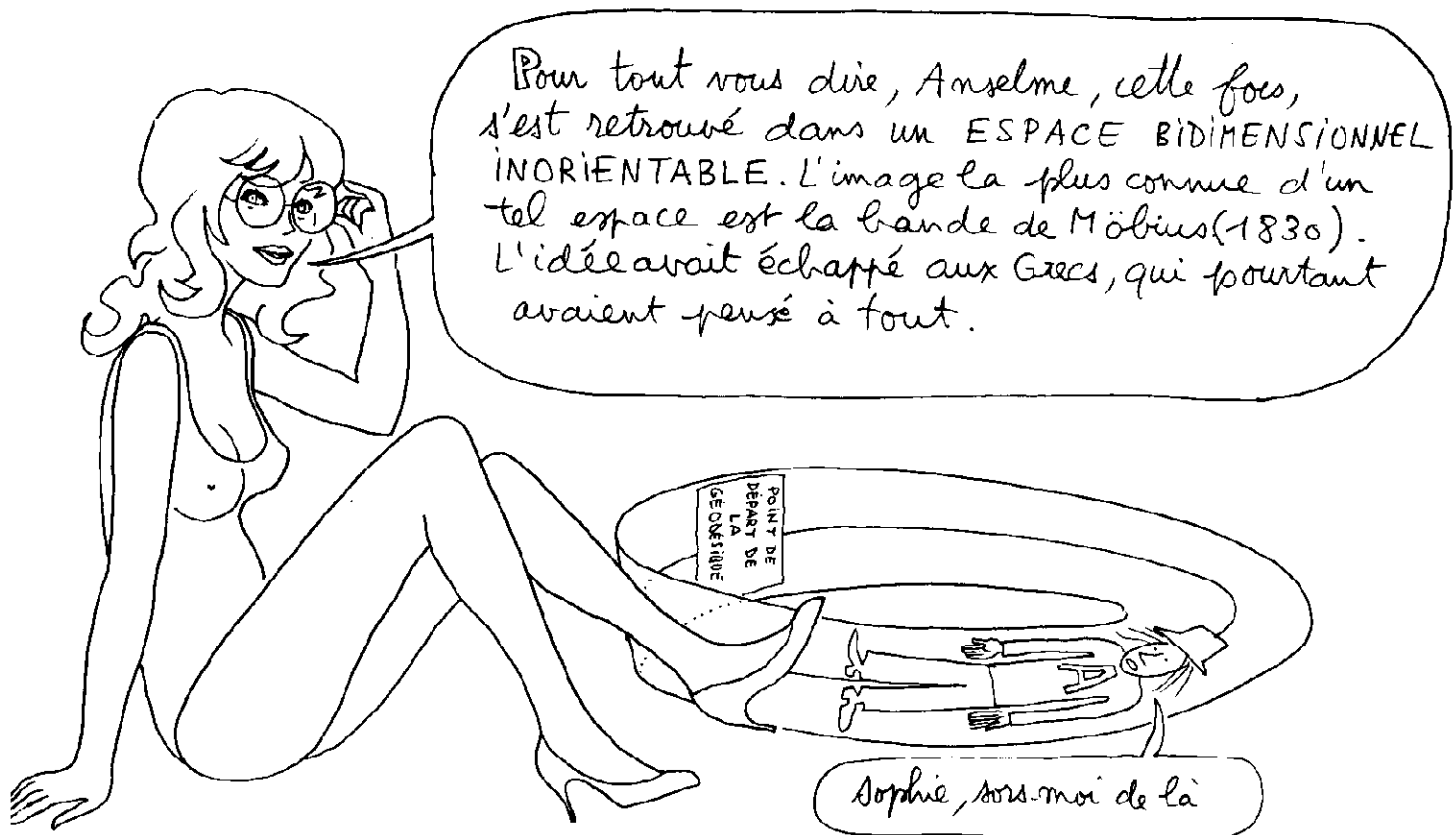 Pour tout vous dire, Anselme, cette fois,
s'est retrouvé dans un ESPACE BIDIMENSIONNEL
INORIENTABLE. L'image la plus connue d'un
tel espace est la bande de Möbius (1830).
L'idée avait échappé aux Grecs, qui pourtant
avaient pensé à tout.
POINT DE
DÉPART DE
LA
GÉODÉSIQUE
A
Sophie, sors-moi de là